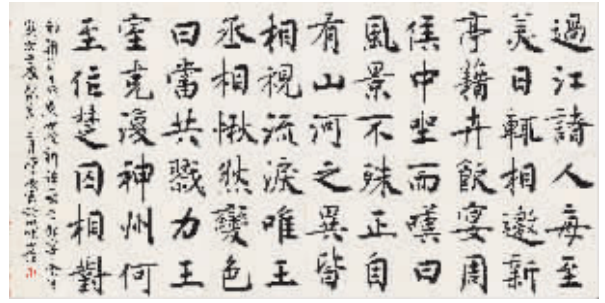 過江諸人每至
美日輒相邀新
亭藉卉飲宴周
侯中坐而嘆曰
風景不殊正自
有山河之異皆
相視流淚唯王
丞相愀然變色
曰當共戮力王
室克復神州何
至作楚囚相對